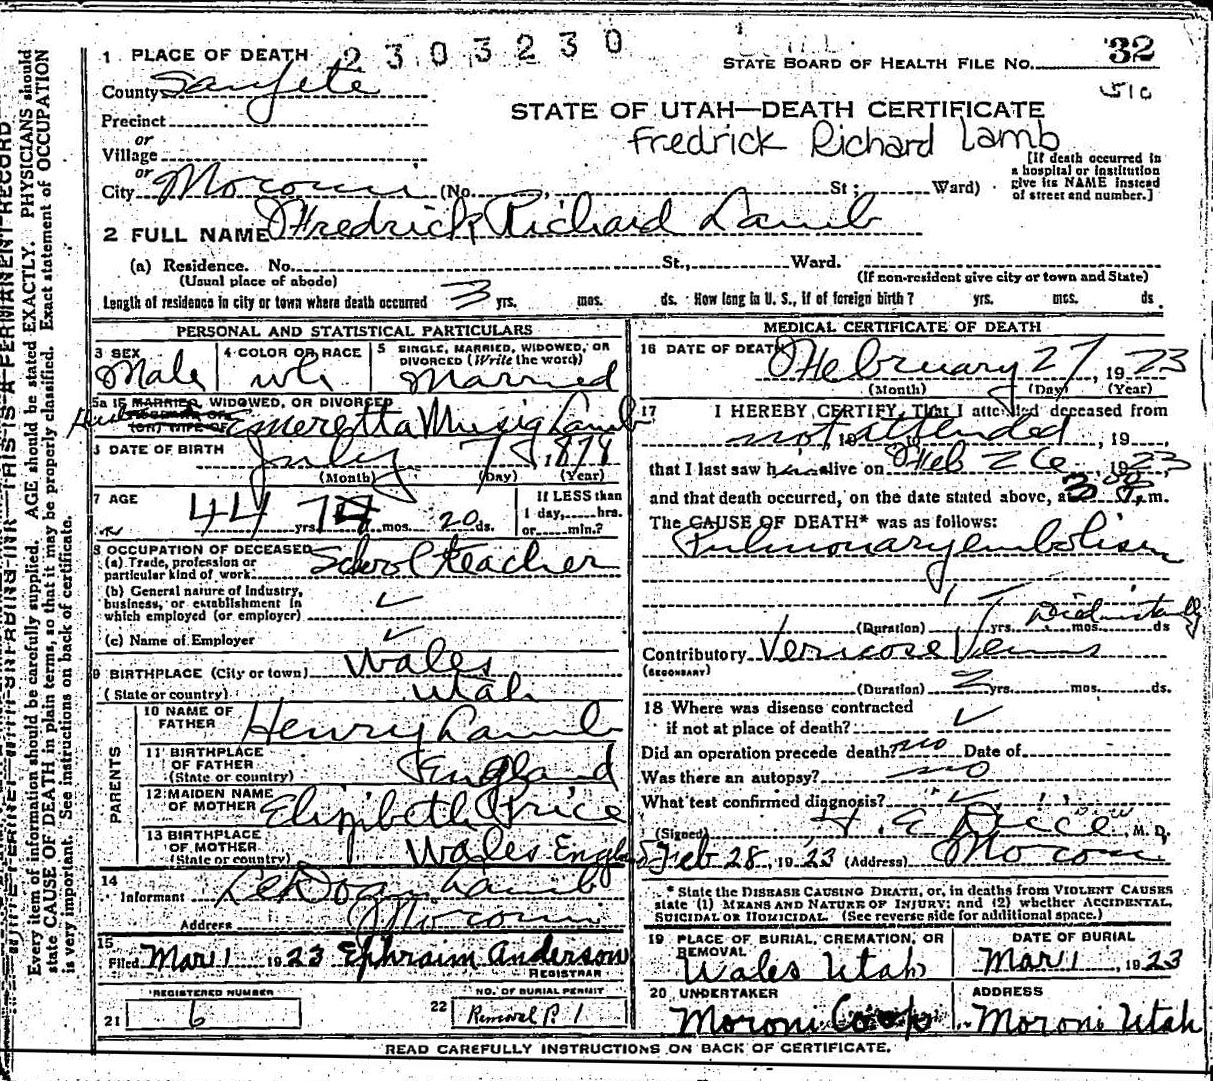 1 PLACE OF DEATH 2303230
STATE BOARD OF HEALTH FILE NO. 32
County Sanpete
510
STATE OF UTAH—DEATH CERTIFICATE
Precinct
Fredrick Richard Lamb
or
Village
or
City Moroni (No. St; Ward)
[If death occurred in a hospital or institution give its NAME instead of street and number.]
2 FULL NAME Fredrick Richard Lamb
(a) Residence. No. St., Ward.
(Usual place of abode) (If non-resident give city or town and State)
Length of residence in city or town where death occurred 3 yrs. mos. ds. How long in U. S., if of foreign birth? yrs. mos. ds.
PERSONAL AND STATISTICAL PARTICULARS
3 SEX Male
4 COLOR OR RACE wh
5 SINGLE, MARRIED, WIDOWED, OR DIVORCED (Write the word) Married
5a If MARRIED, WIDOWED, OR DIVORCED
(OR) WIFE OF Emeretta Musig Lamb
DATE OF BIRTH July 7, 1878
(Month) (Day) (Year)
7 AGE 44 yrs. 7 mos. 20 ds.
If LESS than 1 day, hrs. or min.?
8 OCCUPATION OF DECEASED
(a) Trade, profession or particular kind of work School teacher
(b) General nature of industry, business, or establishment in which employed (or employer) ✓
(c) Name of Employer ✓
9 BIRTHPLACE (City or town) Wales
(State or country) Utah
PARENTS
10 NAME OF FATHER Henry Lamb
11 BIRTHPLACE OF FATHER (State or country) England
12 MAIDEN NAME OF MOTHER Elizibeth Price
13 BIRTHPLACE OF MOTHER (State or country) Wales Engl
14 Informant Lamb
Address Moroni
15 Filed Mar 1 1923 Ephraim Anderson
REGISTRAR
REGISTERED NUMBER
21 6
NO. OF BURIAL PERMIT
22 Removal P. 1
MEDICAL CERTIFICATE OF DEATH
16 DATE OF DEATH February 27, 1923
(Month) (Day) (Year)
17 I HEREBY CERTIFY, That I attended deceased from
not attended, 19
that I last saw him alive on Feb 26, 1923
and that death occurred, on the date stated above, at 3 m.
The CAUSE OF DEATH* was as follows:
Pulmonary embolism
Died instantly
(Duration) yrs. mos. ds
Contributory Vericose Veins
(SECONDARY)
(Duration) 2 yrs. mos. ds.
18 Where was disease contracted
if not at place of death? ✓
Did an operation precede death? no Date of
Was there an autopsy? no
What test confirmed diagnosis?
(Signed) M. D.
Feb 28, 1923 (Address) Moroni
* State the DISEASE CAUSING DEATH, or, in deaths from VIOLENT CAUSES
state (1) MEANS AND NATURE OF INJURY; and (2) whether ACCIDENTAL,
SUICIDAL OR HOMICIDAL. (See reverse side for additional space.)
19 PLACE OF BURIAL, CREMATION, OR REMOVAL Wales Utah
DATE OF BURIAL Mar 1, 1923
20 UNDERTAKER Moroni Co op
ADDRESS Moroni Utah
READ CAREFULLY INSTRUCTIONS ON BACK OF CERTIFICATE.
THIS IS A PERMANENT RECORD
Every item of information should be carefully supplied. AGE should be stated EXACTLY. PHYSICIANS should
state CAUSE OF DEATH in plain terms, so that it may be properly classified. Exact statement of OCCUPATION
is very important. See instructions on back of certificate.